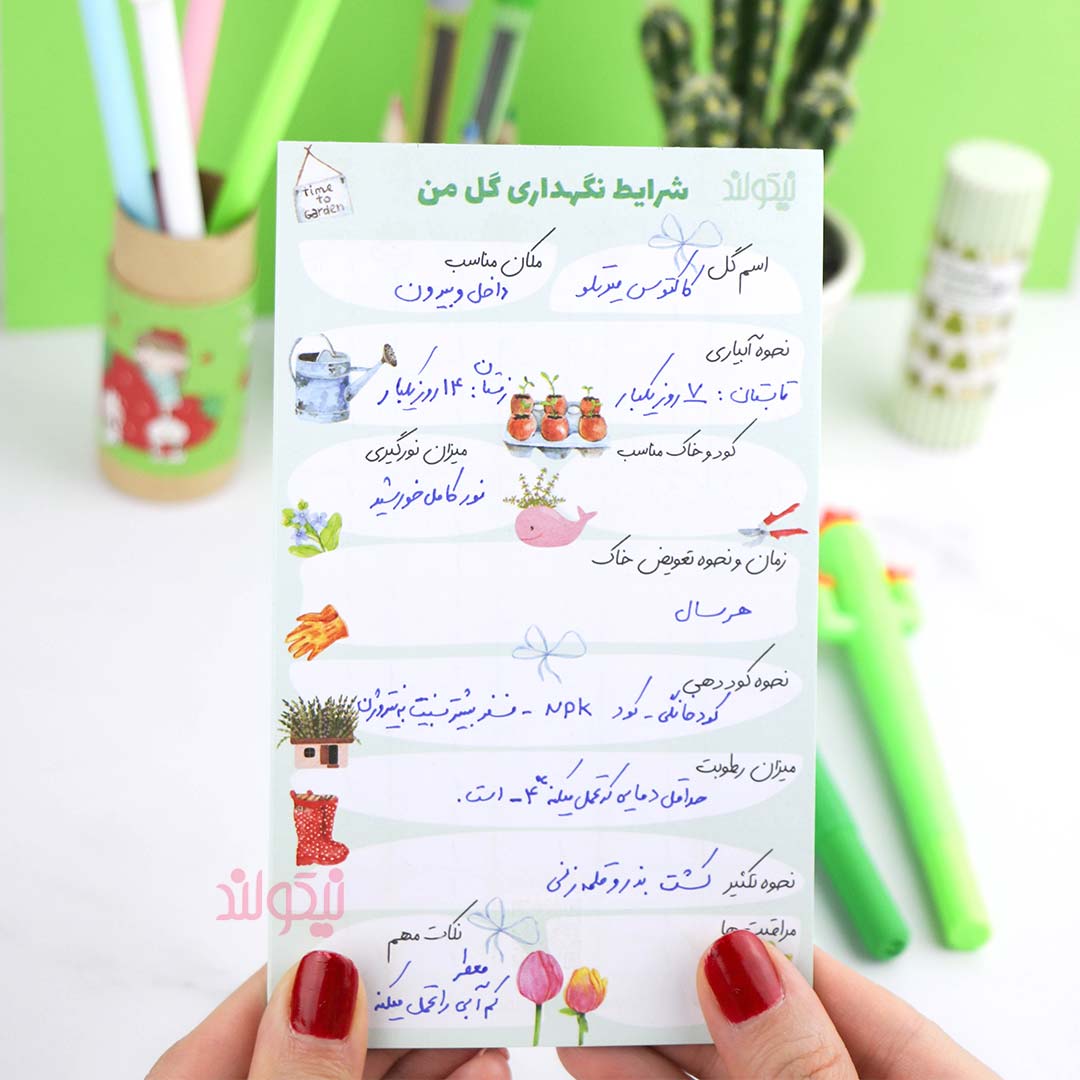 نیکولند
شرایط نگهداری گل من
Time
to
Garden
اسم گل
کاکتوس میرتیلو
مکان مناسب
داخل و بیرون
نحوه آبیاری
تابستان : ۷ روز یکبار
زمستان : ۱۴ روز یکبار
کود و خاک مناسب
میزان نورگیری
نور کامل خورشید
زمان و نحوه تعویض خاک
هر سال
نحوه کود دهی
کود خانگی - کود NPK - فسفر بیشتر نسبت به نیتروژن
میزان رطوبت
حداقل دمایی که تحمل میکنه ۴- است.
نحوه تکثیر
کشت بذر و قلمه زنی
مراقبت ها
نکات مهم
معطر
کم آبی را تحمل میکنه
نیکولند